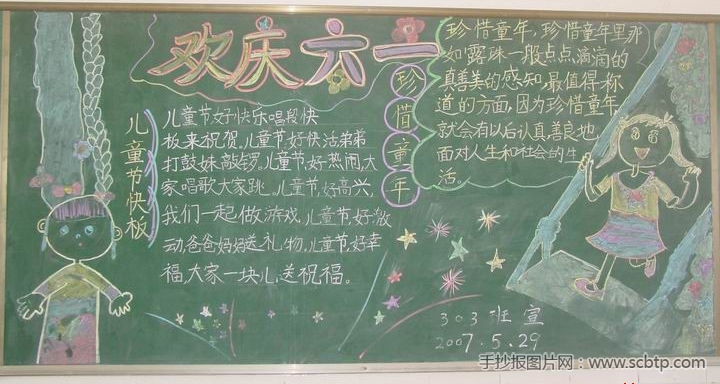 欢庆六一
珍惜童年
儿童节快板
儿童节,好快乐,唱段快
板来祝贺。儿童节,好快活,弟弟
打鼓妹敲锣。儿童节,好热闹,大
家唱歌大家跳。儿童节,好高兴,
我们一起做游戏。儿童节,好激
动,爸爸妈妈送礼物。儿童节,好幸
福,大家一块儿送祝福。
珍惜童年,珍惜童年里那
如露珠一般点点滴滴的
真善美的感知,最值得称
道的方面,因为珍惜童年,
就会有以后认真,善良地
面对人生和社会的生
活。
303班 宣
2007.5.29
手抄报图片网:www.scbtp.com